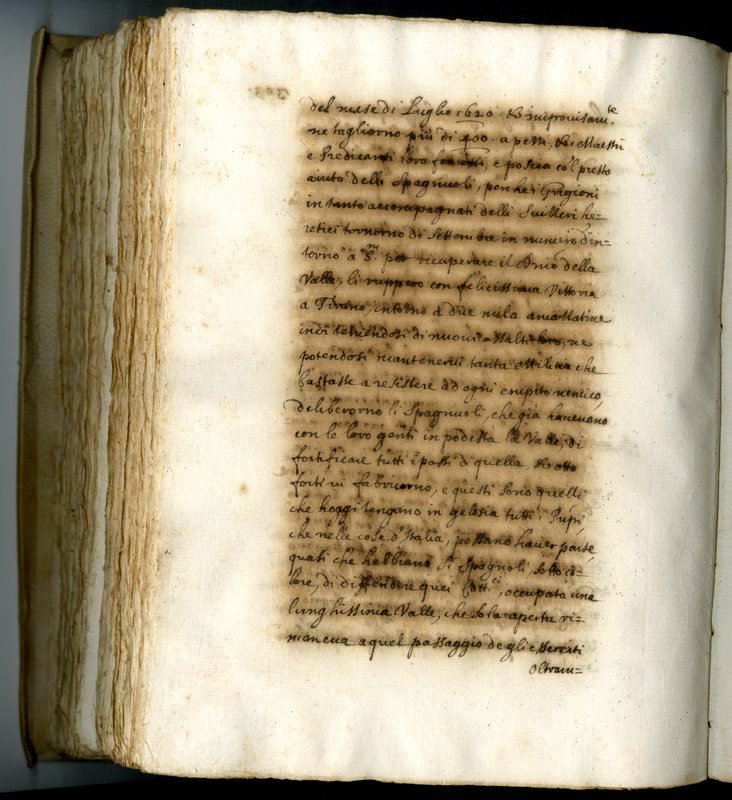 del mese di Luglio 1620. & improvisam.te
ne tagliorno più di 400. a pezzi, & i Maestri
e Predicanti loro, e poscia co'l presto
aiuto delli Spagnuoli, perche i Grigioni
in tanto accompagnati delli Suizzeri he=
retici tornorno di Settembre in numero d'in=
torno a per ricuperare il della
Valle, li ruppero con felicissima Vittoria
a Tirano, intorno à due mila amazzatine
indi temendosi di nuovi assalti loro, ne
potendosi mantenervi tanta Militia che
bastasse a resistere ad ogni empito nemico,
deliberorno li Spagnuoli, che già havevano
con le loro genti in podestà la Valle, di
fortificare tutti i posti di quella, & otto
forti vi fabricorno, e questi sono quelli
che hoggi tengano in gelosia tutti i Prīpi,
che nelle cose d'Italia, possano haver parte,
quasi che habbiano li Spagnoli, sotto co=
lore, di diffendere quei Catt.ci, occupata una
lunghissima Valle, che sola aperta ri=
maneva a quel passaggio de gli esserciti
oltram=